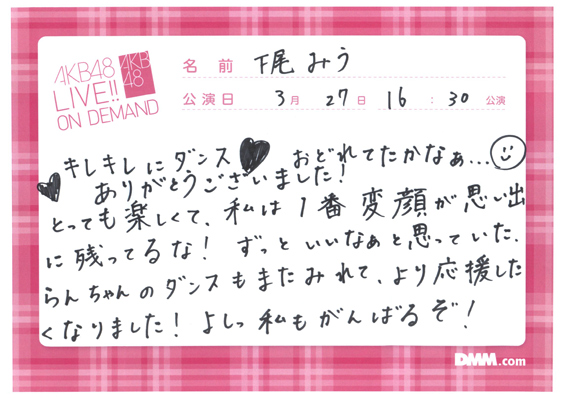 AKB48
LIVE!!
ON DEMAND
AKB
48
名前 下尾みう
公演日 3月 27日 16:30 公演
キレキレにダンス♥ おどれてたかなぁ...☺
♥ ありがとうございました!
とっても楽しくて、私は1番変顔が思い出
に残ってるな! ずっといいなぁと思っていた、
らんちゃんのダンスもまたみれて、より応援した
くなりました! よしっ私もがんばるぞ!
DMM.com